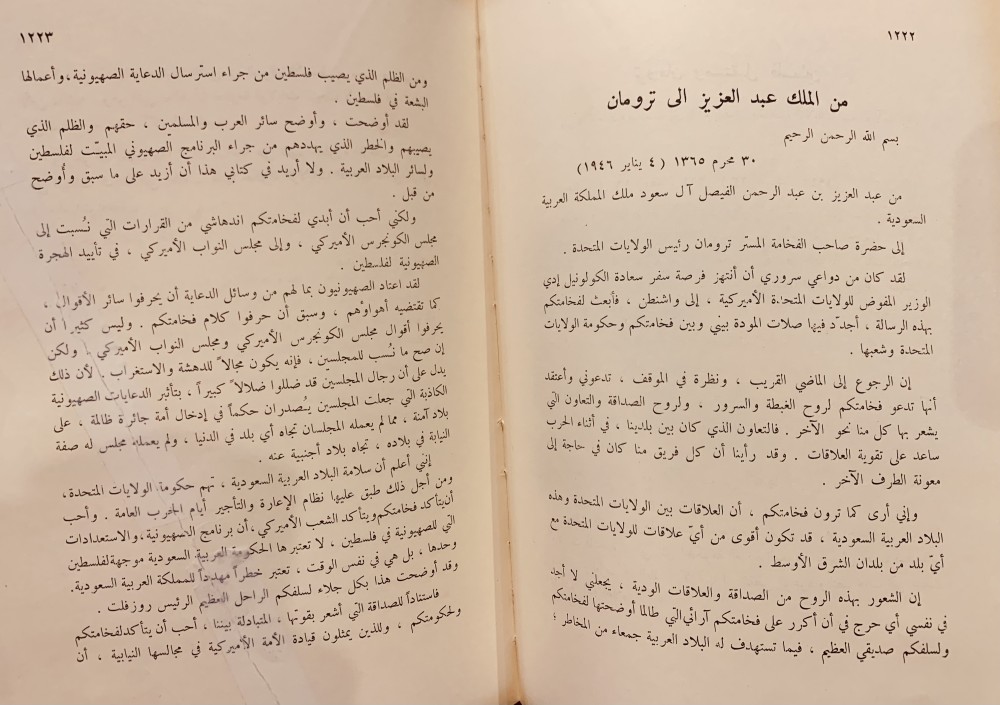 ١٢٢٢
من الملك عبد العزيز الى ترومان
بسم الله الرحمن الرحيم
٣٠ محرم ١٣٦٥ ( ٤ يناير ١٩٤٦ )
من عبد العزيز بن عبد الرحمن الفيصل آل سعود ملك المملكة العربية
السعودية .
إلى حضرة صاحب الفخامة المستر ترومان رئيس الولايات المتحدة .
لقد كان من دواعي سروري أن أنتهز فرصة سفر سعادة الكولونيل إدي
الوزير المفوض للولايات المتحدة الأميركية ، إلى واشنطن ، فأبعث لفخامتكم
بهذه الرسالة ، أجدّد فيها صلات المودة بيني وبين فخامتكم وحكومة الولايات
المتحدة وشعبها .
إن الرجوع إلى الماضي القريب ، ونظرة في الموقف ، تدعوني وأعتقد
أنها تدعو فخامتكم لروح الغبطة والسرور ، ولروح الصداقة والتعاون التي
يشعر بها كل منا نحو الآخر . فالتعاون الذي كان بين بلدينا ، في أثناء الحرب
ساعد على تقوية العلاقات . وقد رأينا أن كل فريق منا كان في حاجة إلى
معونة الطرف الآخر .
وإني أرى كما ترون فخامتكم ، أن العلاقات بين الولايات المتحدة وهذه
البلاد العربية السعودية ، قد تكون أقوى من أيّ علاقات للولايات المتحدة مع
أيّ بلد من بلدان الشرق الأوسط .
إن الشعور بهذه الروح من الصداقة والعلاقات الودية ، يجعلني لا أجد
في نفسي أي حرج في أن أكرر على فخامتكم آرائي التي طالما أوضحتها لفخامتكم
ولسلفكم صديقي العظيم ، فيما تستهدف له البلاد العربية جمعاء من المخاطر ؛
١٢٢٣
ومن الظلم الذي يصيب فلسطين من جراء استرسال الدعاية الصهيونية ، وأعمالها
البشعة في فلسطين .
لقد أوضحت ، وأوضح سائر العرب والمسلمين ، حقهم والظلم الذي
يصيبهم والخطر الذي يهددهم من جراء البرنامج الصهيوني المبيّت لفلسطين
ولسائر البلاد العربية . ولا أريد في كتابي هذا أن أزيد على ما سبق وأُوضح
من قبل .
ولكني أحب أن أبدي لفخامتكم اندهاشي من القرارات التي نُسبت إلى
مجلس الكونجرس الأميركي ، وإلى مجلس النواب الأميركي ، في تأييد الهجرة
الصهيونية لفلسطين .
لقد اعتاد الصهيونيون بما لهم من وسائل الدعاية أن يحرفوا سائر الأقوال ،
كما تقتضيه أهواؤهم ، وسبق أن حرفوا كلام فخامتكم . وليس كثيراً أن
يحرفوا أقوال مجلس الكونجرس الأميركي ومجلس النواب الأميركي . ولكن
إن صح ما نُسب للمجلسين ، فإنه يكون مجالاً للدهشة والاستغراب . لأن ذلك
يدل على أن رجال المجلسين قد ضللوا ضلالاً كبيراً ، بتأثير الدعايات الصهيونية
الكاذبة التي جعلت المجلسين يُصدران حكماً في إدخال أمة جائرة ظالمة ، على
بلاد آمنة ، مما لم يعمله المجلسان تجاه أي بلد في الدنيا ، ولم يعمله مجلس له صفة
النيابة في بلاده ، تجاه بلاد أجنبية عنه .
إنني أعلم أن سلامة البلاد العربية السعودية ، تهم حكومة الولايات المتحدة ،
ومن أجل ذلك طبق عليها نظام الإعارة والتأجير أيام الحرب العامة . وأحب
أن يتأكد فخامتكم ويتأكد الشعب الأميركي ، أن برنامج الصهيونية ، والاستعدادات
التي للصهيونية في فلسطين ، لا تعتبرها الحكومة العربية السعودية موجهة لفلسطين
وحدها ، بل هي في نفس الوقت ، تعتبر خطراً مهدداً للمملكة العربية السعودية .
وقد أوضحت هذا بكل جلاء لسلفكم الراحل العظيم الرئيس روزفلت .
فاستناداً للصداقة التي أشعر بقوتها ، المتبادلة بيننا ، أحب أن يتأكد لفخامتكم
ولحكومتكم ، وللذين يمثلون قيادة الأمة الأميركية في مجالسها النيابية ، أن